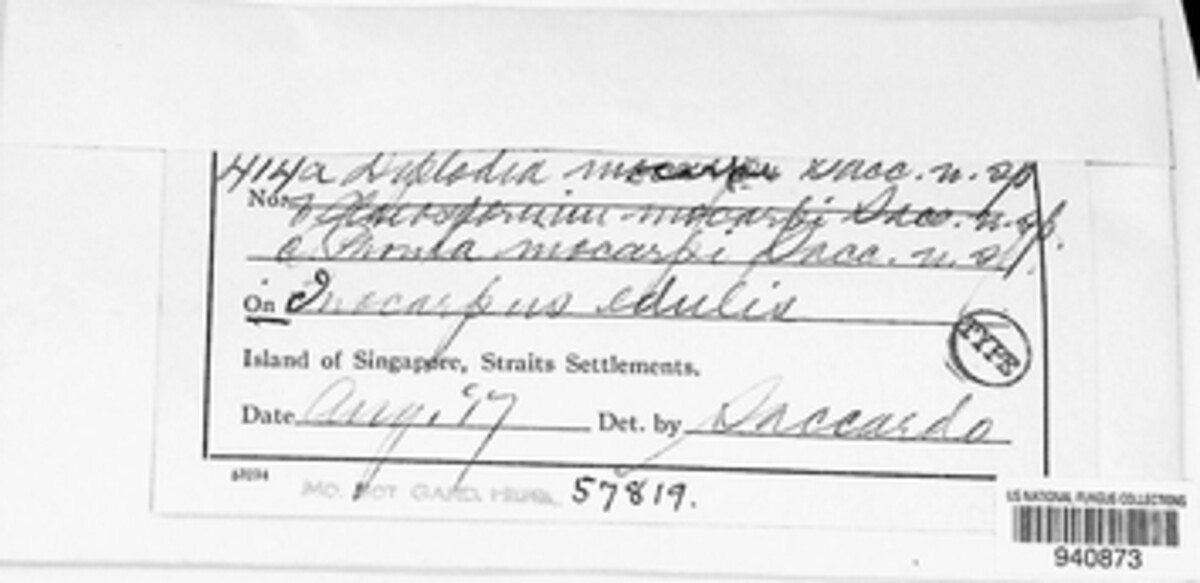 414a Diplodia mocarpi Sacc. n. sp
No.
mocarpi Sacc. n. sp.
c. Phoma mocarpi Sacc. n. sp.
On Inocarpus edulis
TYPE
Island of Singapore, Straits Settlements.
Date Aug. '17 Det. by Saccardo
MO. BOT GARD. HERB. 57819.
US NATIONAL FUNGUS COLLECTIONS
940873